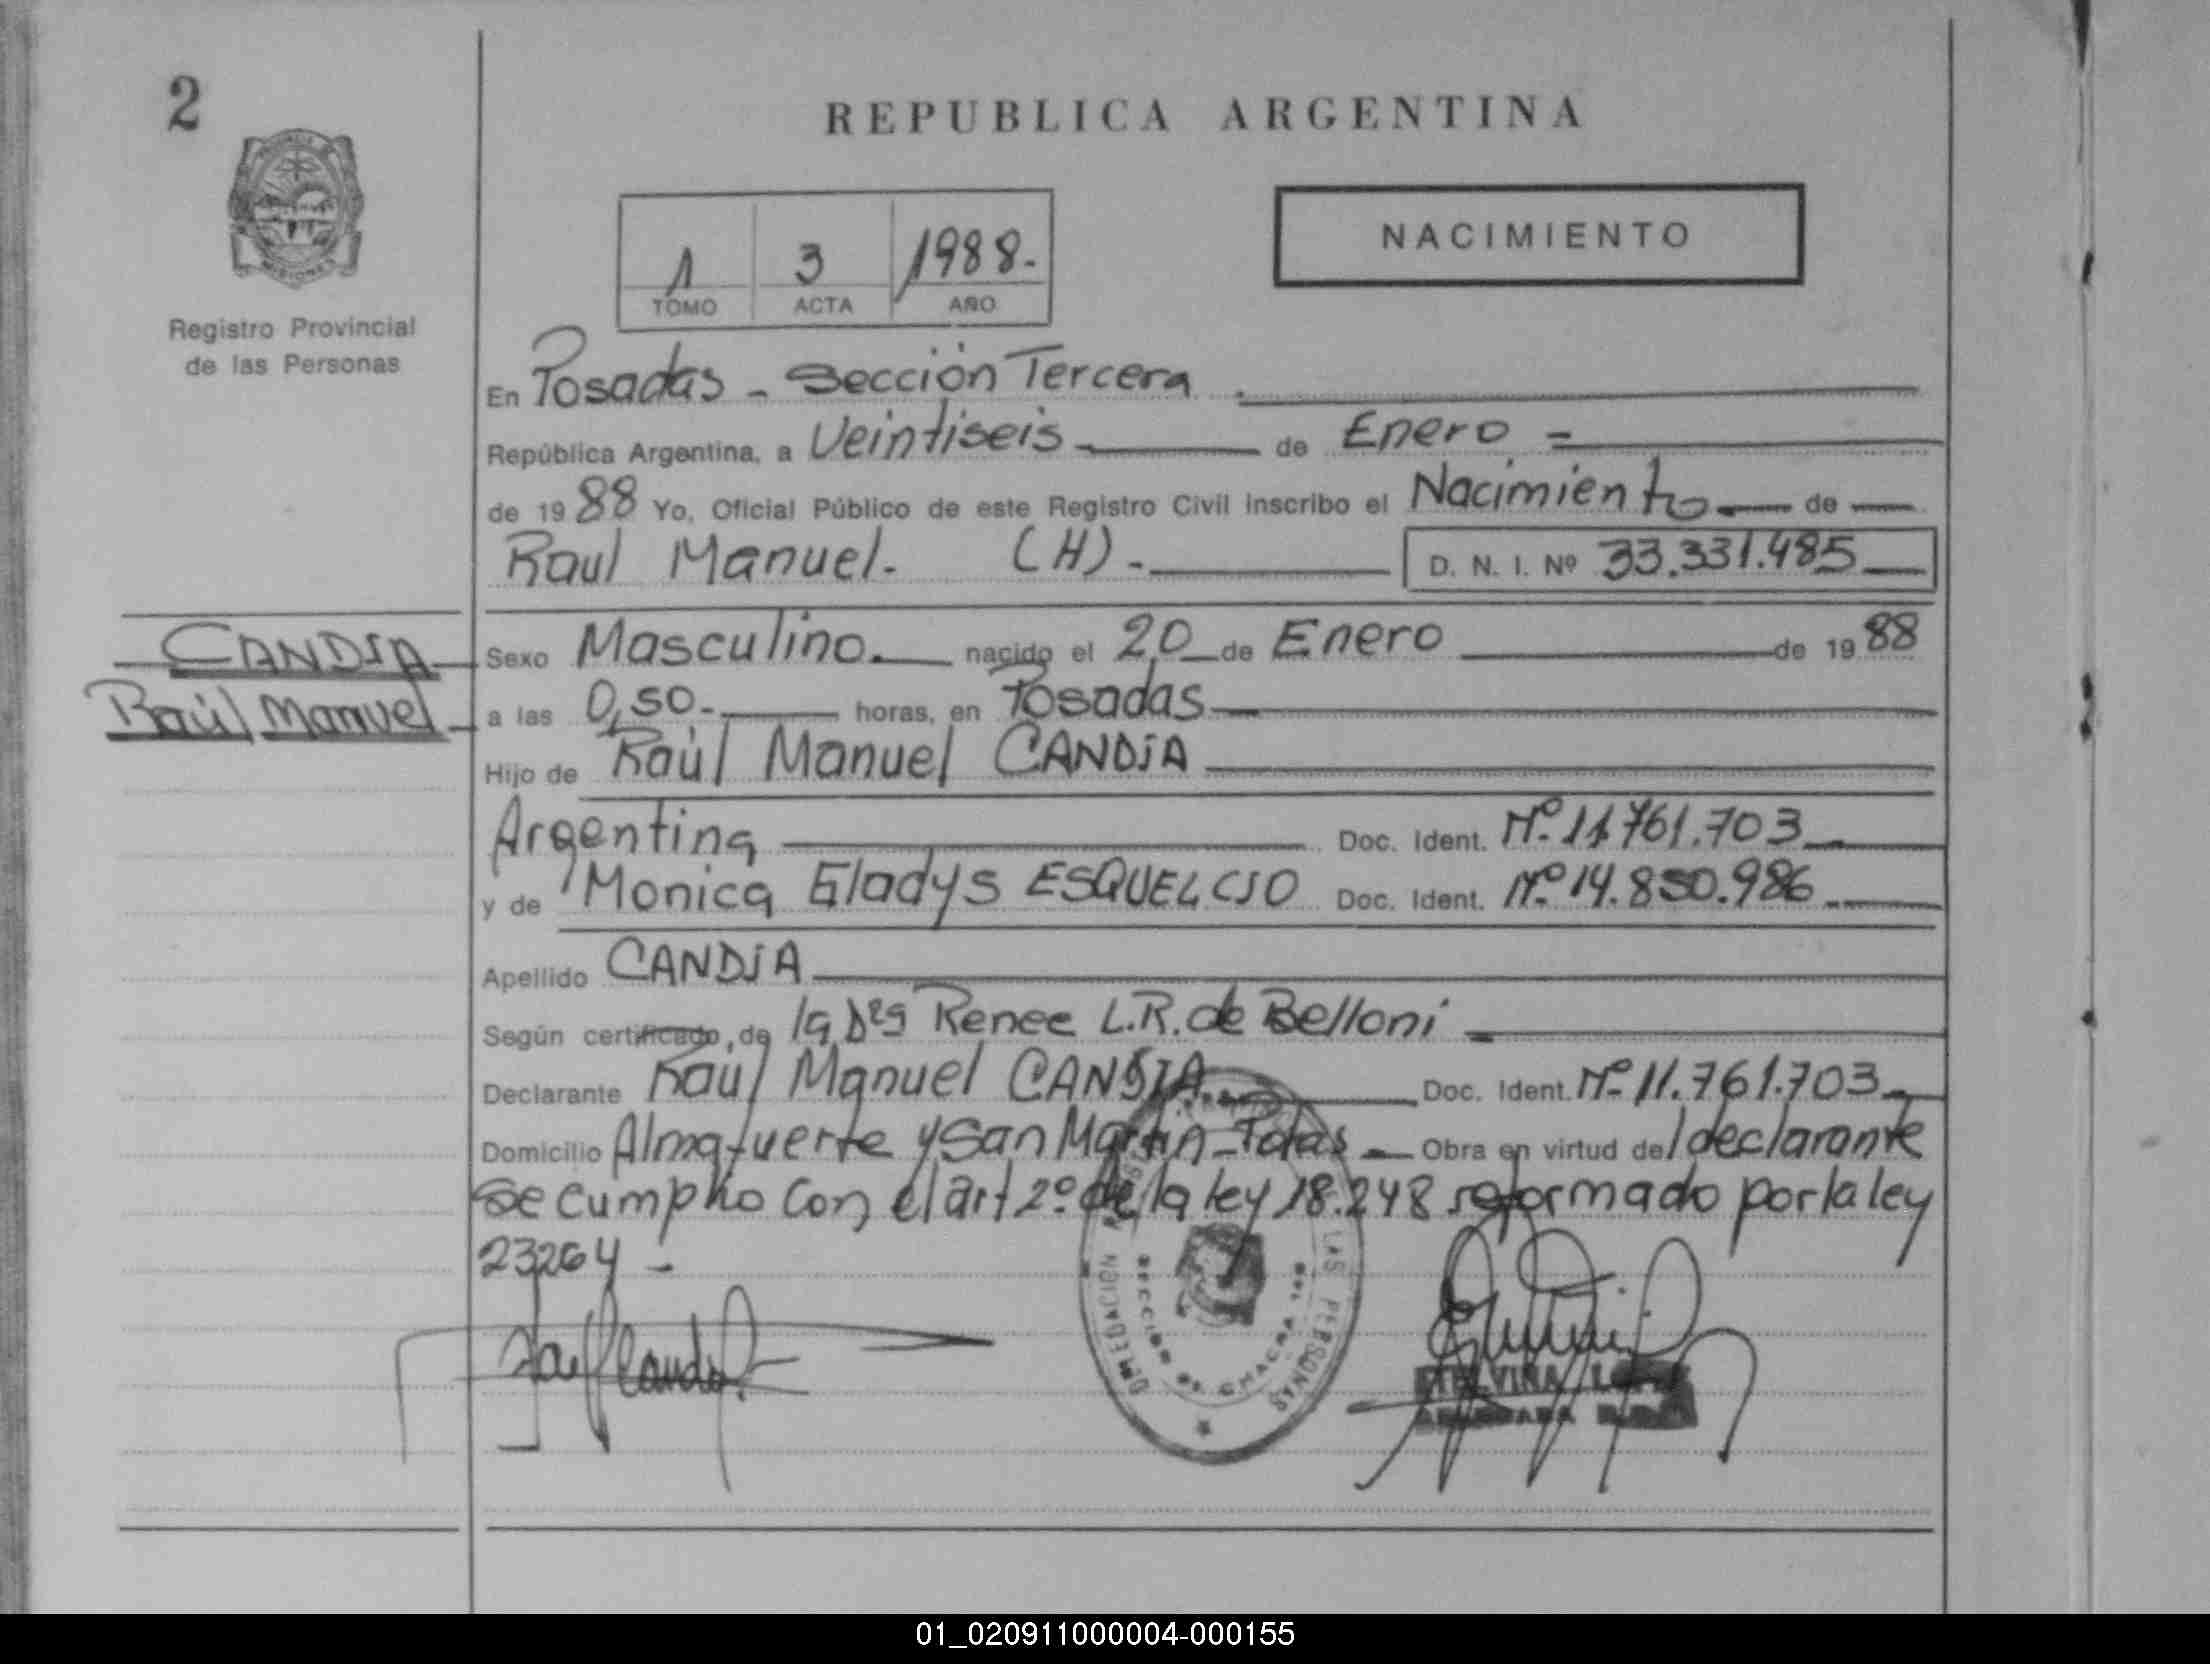 2
REPUBLICA ARGENTINA
NACIMIENTO
1 3 1988.-
TOMO ACTA AÑO
Registro Provincial
de las Personas
En Posadas - Sección Tercera.
República Argentina, a Veintiseis de Enero =
de 1988 Yo, Oficial Público de este Registro Civil inscribo el Nacimiento de
Raul Manuel. (H).- D. N. I. Nº 33.331.485
CANDIA
Raúl Manuel
Sexo Masculino. nacido el 20 de Enero de 1988
a las 0,50.- horas, en Posadas
Hijo de Raúl Manuel CANDiA
Argentina Doc. Ident. Nº 11.761.703
y de Monica Gladys ESQUELCIO Doc. Ident. Nº 14.850.986
Apellido CANDiA
Según certificado, de la Dra Renee L.R. de Belloni
Declarante Raúl Manuel CANDIA Doc. Ident. Nº 11.761.703
Domicilio Almafuerte y San Martin - Pdas - Obra en virtud del declarante
Se cumplio con el art 2º de la ley 18.248 reformado por la ley
23264 -
LAS PERSONAS
SECCION 3ª CHACRA 148
01_020911000004-000155